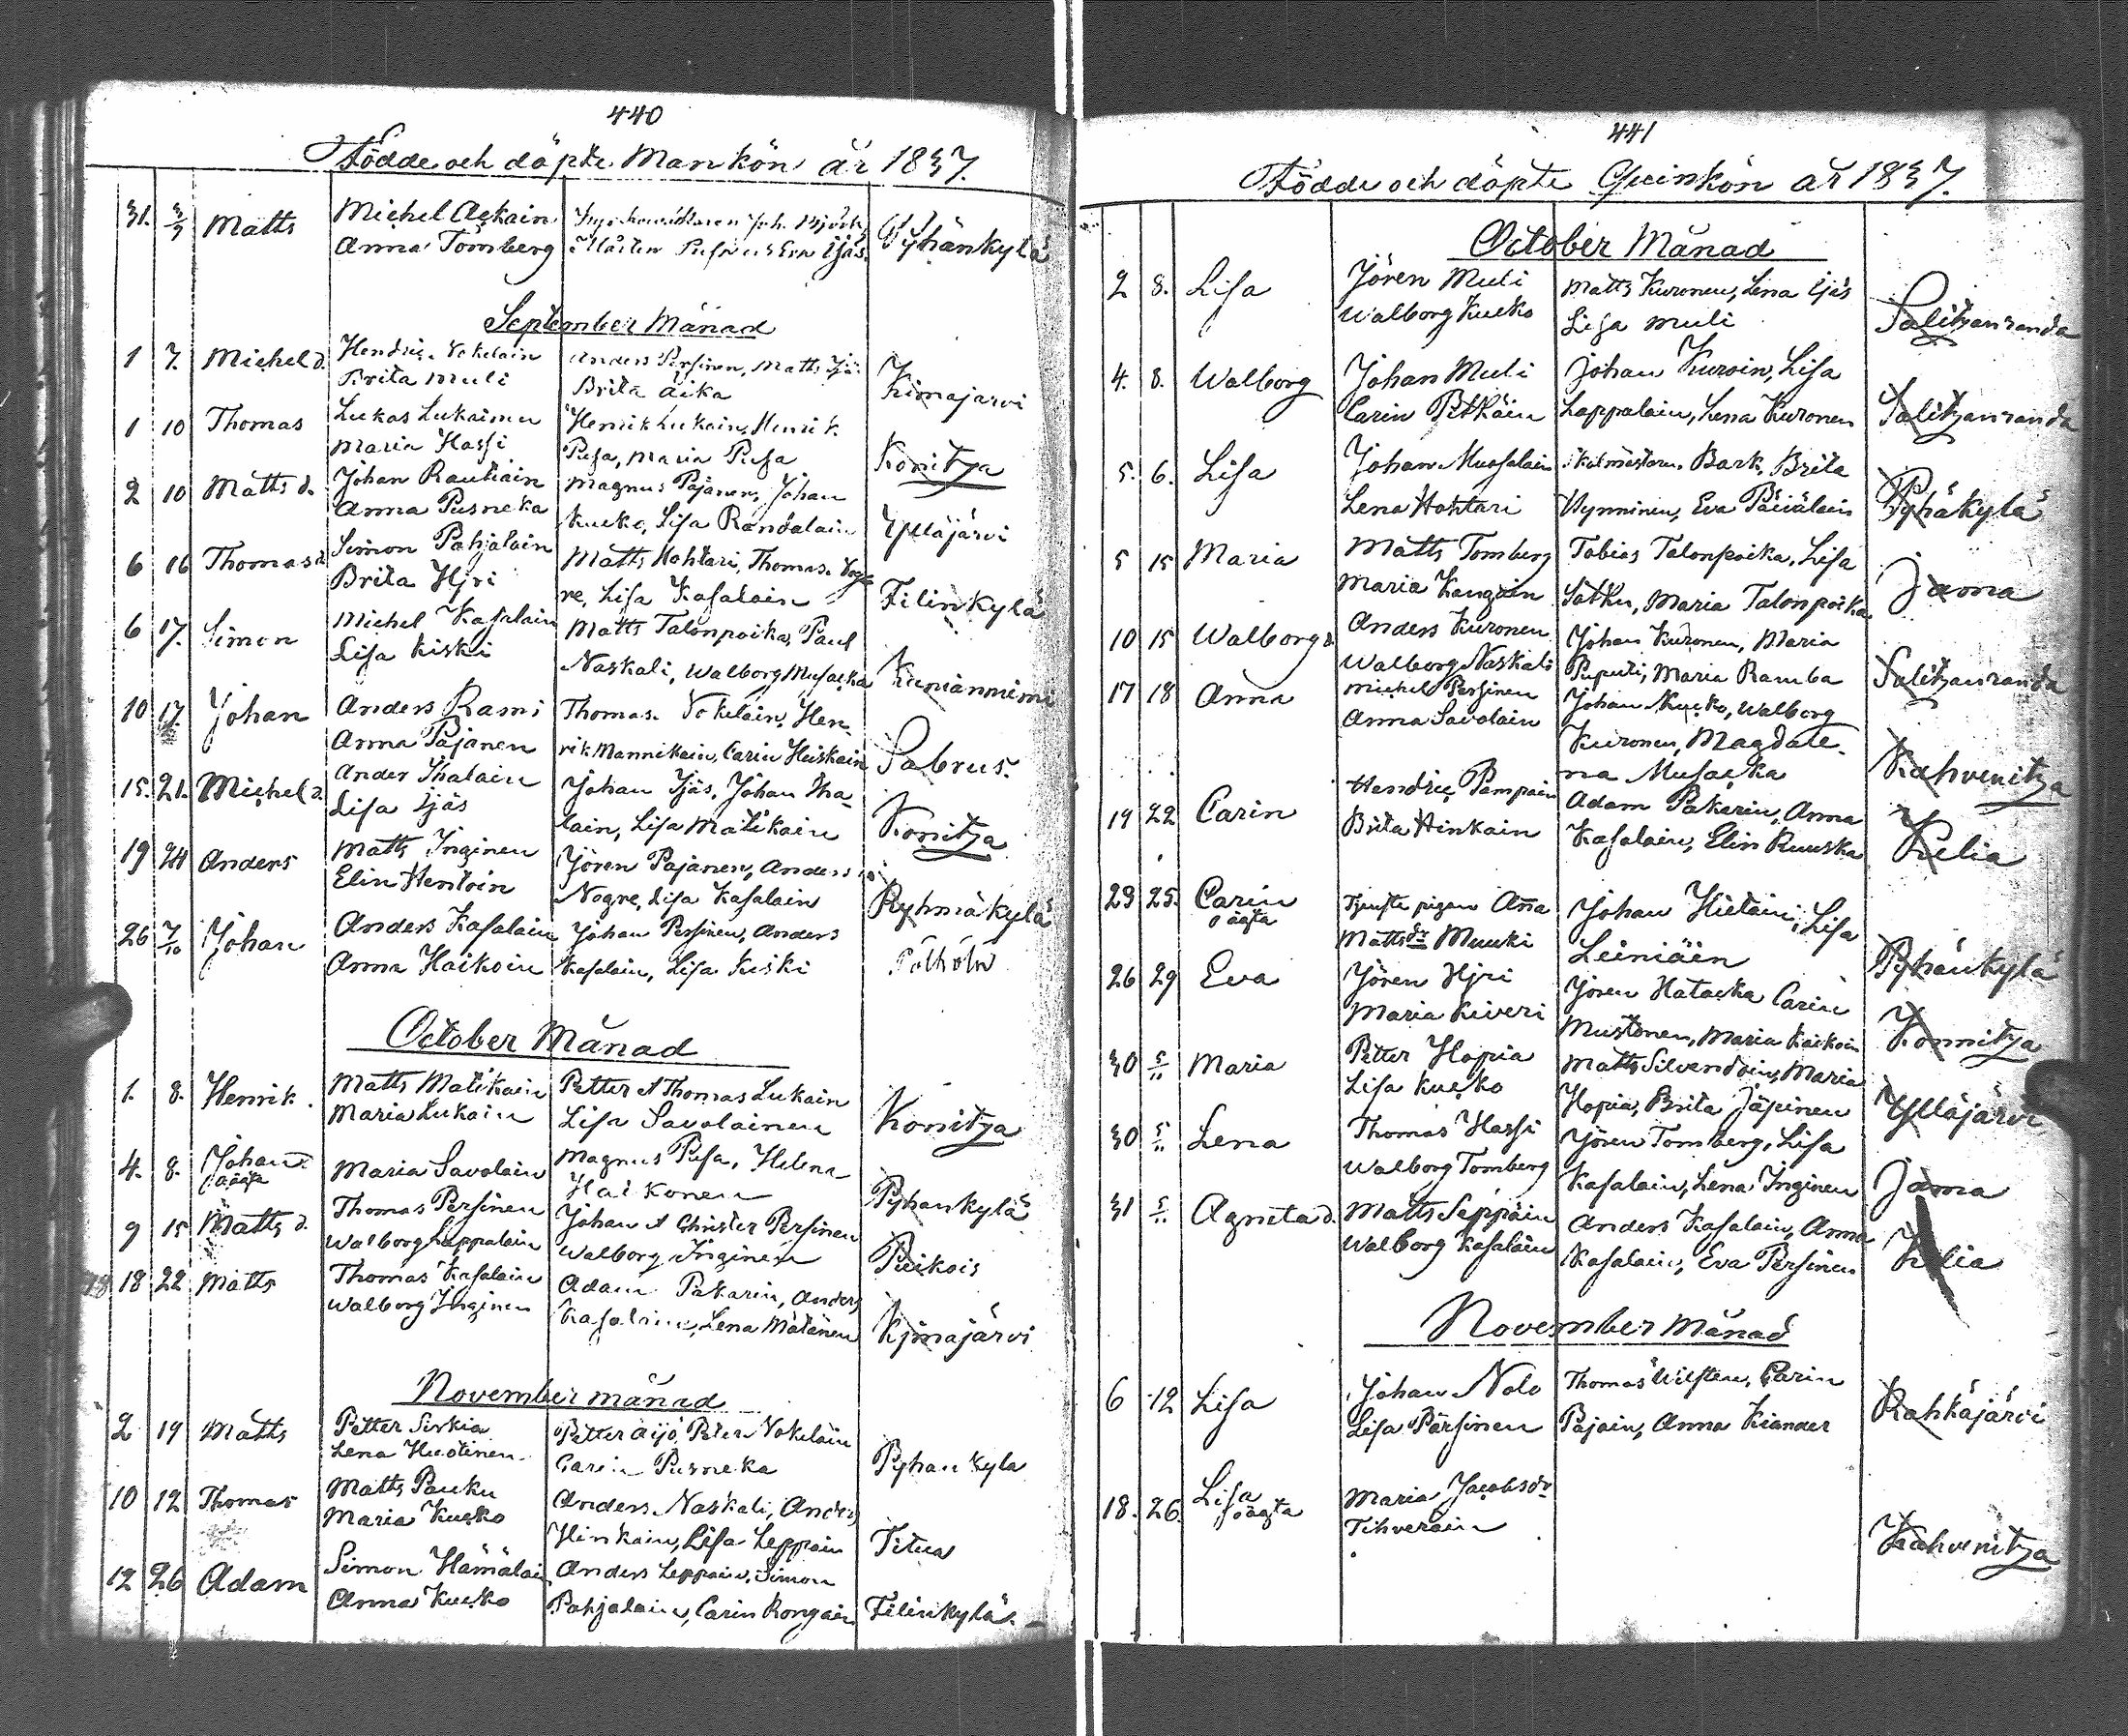 440
Födde och döpte Mankön år 1837.
31. 3/9 Matts Michel Ackain Joh. Pyhänkylä
Anna Tömberg Mårten
September Månad
1 7. Michel d. Hendric Vokelain Anders Persinen, Matts Kimajarvi
Brita Muli Brita Äikä
1 10 Thomas Lukas Lukainen Henrik Lukain, Henrik Konitza
Maria Hassi Pusa, Maria Pusa
2 10 Matts d. Johan Rautiain Magnus Pajanen, Johan Ylläjärvi
Anna Pusneka Kucko, Lisa Randalain
6 16 Thomas d. Simon Pahjalain Matts Hohtari, Thomas Nog- Filinkylä
Brita Hjri re, Lisa Kasalain
6 17. Simon Michel Kasalain Matts Talonpoika, Paul
Lisa Kiski Naskali, Walborg Musacka
10 17. Johan Anders Rami Thomas Vokeläin, Hen- Sabrus.
Anna Pajanen rik Mannikain, Carin Heiskain
15. 21. Michel d. Ander Ihalain Johan Ijäs, Johan Iha- Konitza
Lisa Ijäs lain, Lisa Matikain
19 24 Anders Matts Inginen Jören Pajanen, Anders Ryhmäkylä
Elin Hentoin Nogre, Lisa Kasalain
26 7/10 Johan Anders Kasalain Johan Persinen, Anders
Anna Haikoin Kasalain, Lisa Kiski
October Månad
1. 8. Henrik. Matts Matikain Petter & Thomas Lukain Konitza
Maria Lukain Lisa Savolainen
4. 8. Johan d. Maria Savolain Magnus Pusa, Helena Pyhankylä
oägta Haikonen
9 15 Matts d. Thomas Persinen Johan & Christer Persinen Puikois
Walborg Lappalain Walborg Inginen
18 22 Matts Thomas Kasalain Adam Pakarin, Anders Kjmajärvi
Walborg Inginen Kasalain, Lena Mätänen
November månad
2 19 Matts Petter Sirkiä Petter Äijö, Peter Vokeläin Pyhankyla
Lena Huotinen Carin Pusneka
10 12 Thomas Matts Pauku Anders Naskali, Anders Titua
Maria Kucko Hinkain, Lisa Leppain
12 26 Adam Simon Hämäläin Anders Leppain, Simon Filinkylä.
Anna Kucko Pahjalain, Carin Rongain
441
Födde och döpte Qvinkön år 1837.
October Månad
2 8. Lisa Jören Muli Matts Kuronen, Lena Ijäs Salitzanranda
Walborg Kucko Lisa Muli
4. 8. Walborg Johan Muli Johan Kuroin, Lisa Salitzanranda
Carin Pitkäin Lappalain, Lena Kuronen
5. 6. Lisa Johan Mussalain Skolmästaren Bark, Brita Pyhäkylä
Lena Hohtari Hynninen, Eva Päiväläin
5 15 Maria Matts Tomberg Tobias Talonpoika, Lisa Jama
Maria Kangain Sätku, Maria Talonpoika
10 15 Walborg d. Anders Kuronen Johan Kuronen, Maria Salitzanranda
Walborg Naskali Puputi, Maria Ramba
17 18 Anna Michel Persinen Johan Kucko, Walborg Kahvenitza
Anna Savolain Kuronen, Magdale-
na Musacka
19 22 Carin Hendric Pampain Adam Pakarin, Anna Kelia
Brita Hinkain Kasalain, Elin Ruuska
23 25. Carin Tjenste pigan Aña Johan Hietain, Lisa Pyhänkylä
oägta Matts dr Muuki Leiniäin
26 29 Eva Jören Hjri Jören Hatacka Carin Konnitza
Maria Kiveri Mustonen, Maria Kaikoin
30 5/11 Maria Petter Hopia Matts Silvendoin, Maria Ylläjärvi
Lisa Kucko Hopia, Brita Jäpinen
30 5/11 Lena Thomas Hassi Jören Tomberg, Lisa Jama
Walborg Tomberg Kasalain, Lena Inginen
31 5/11 Agneta d. Matts Seppäin Anders Kasalain, Anna Kelia
Walborg Kasalain Kasalain, Eva Persinen
November Månad
6 12 Lisa Johan Nolo Thomas Carin Rahkäjärvi
Lisa Pärsinen Pajain, Anna Kiander
18. 26. Lisa Maria Jacobsdr Kahvenitza
oägta Tihverain